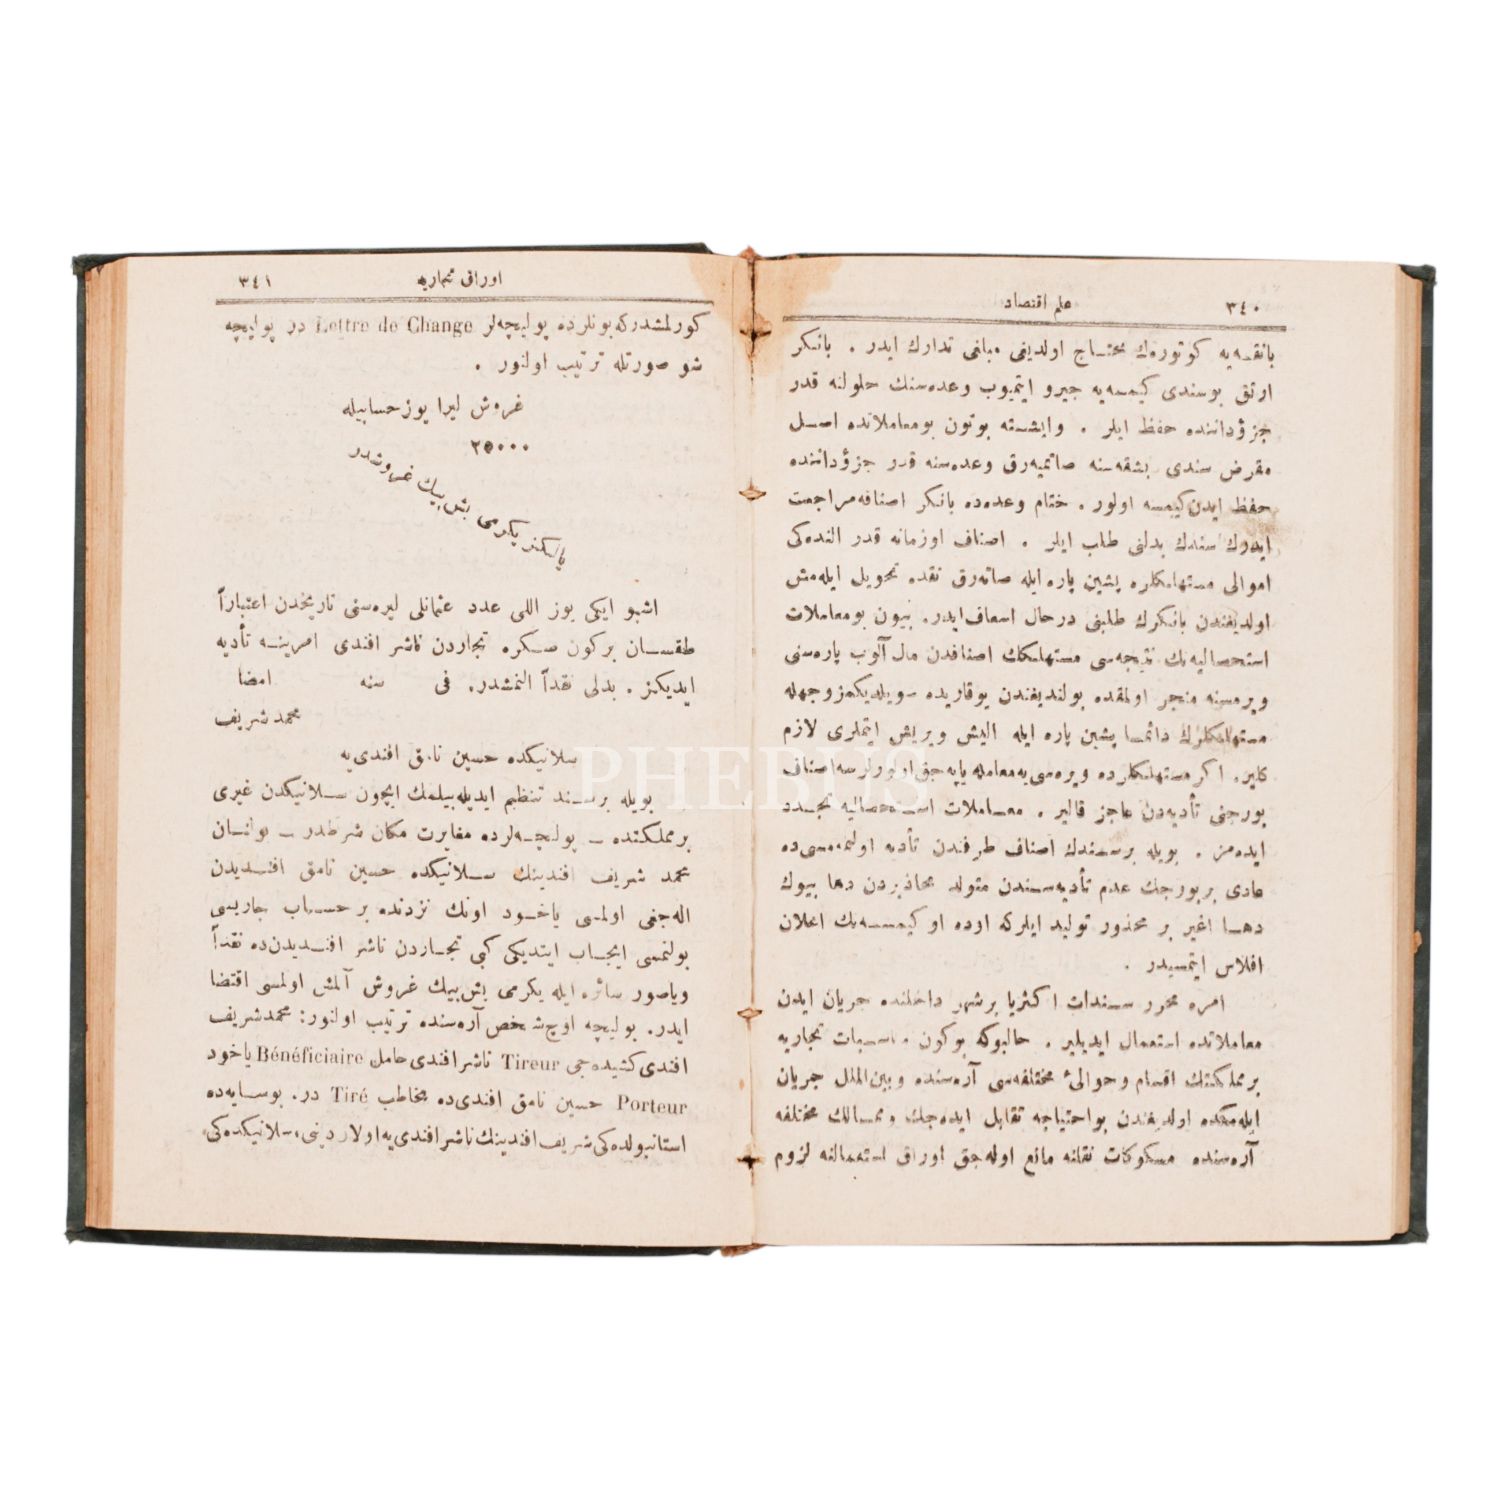 ٣٤٠
علم اقتصاد
بانقه‌یه کوتوره‌رك محتاج اولدیغی مبلغی تدارك ایدر . بانکر
ارتق بوسندی کیمسه‌یه جیرو ایتمیوب وعده‌سنك حلولنه قدر
جزؤداننده حفظ ایلر . وایشته بوتون بومعاملاتده اصل
مقرض سندی بشقه‌سنه صاتمیه‌رق وعده‌سنه قدر جزؤداننده
حفظ ایدن کیمسه اولور . ختام وعده‌ده بانکر اصنافه مراجعت
ایدرك سندك بدلنی طلب ایلر . اصناف اوزمانه قدر النده‌کی
اموالی مستهلکلره پشین پاره ایله صاته‌رق نقده تحویل ایله‌مش
اولدیغندن بانکرك طلبنی درحال اسعاف ایدر. بیون بومعاملات
استحصالیه‌نك نتیجه‌سی مستهلکك اصنافدن مال آلوب پاره‌سنی
ویرمسنه منجر اولمقده بولندیغندن یوقاریده سویلدیکمزوجهله
مستهلکلرك دائما پشین پاره ایله الیش ویریش ایتملری لازم
کلیر. اکر مستهلکلرده ویره‌سی‌یه معامله یاپه‌جق اولورلرسه اصناف
بورجنی تأدیه‌دن عاجز قالیر . معاملات استحصالیه تجدد
ایده‌مز . بویله برسندك اصناف طرفندن تأدیه اولنمه‌مسی‌ده
عادی بربورجك عدم تأدیه‌سندن متولد محاذیردن دها بیوك
دها اغیر بر محذور تولید ایلرکه اوده او کیمسه‌نك اعلان
افلاس ایتمسیدر .
امره محرر سندات اکثریا برشهر داخلنده جریان ایدن
معاملاتده استعمال ایدیلیر . حالبوکه بوکون مناسبات تجاریه
برمملکتك اقسام وحوالیٔ مختلفه‌سی آره‌سنده وبین‌الملل جریان
ایله‌مکده اولدیغندن بواحتیاجه تقابل ایده‌جك وممالك مختلفه
آره‌سنده مسکوکات نقلنه مانع اوله‌جق اوراق استعمالنه لزوم
اوراق تجاریه
٣٤١
کورلمشدرکه بونلرده پولیچه‌لر Lettre de Change در پولیچه
شو صورتله ترتیب اولنور .
غروش لیرا یوز حسابیله
٢٥٠٠٠
یالکز یکرمی بش بیك غروشدر
اشبو ایکی یوز اللی عدد عثمانلی لیره‌سنی تاریخدن اعتباراً
طقسان برکون صکره تجاردن ناشر افندی امرینه تأدیه
ایدیکز . بدلی نقداً النمشدر. فی سنه امضا
محمد شریف
سلانیکده حسین نامق افندی‌یه
بویله برسند تنظیم ایدیله‌بیلمك ایچون سلانیکدن غیری
برمملکتده — پولیچه‌لرده مغایرت مکان شرطدر — بولنان
محمد شریف افندینك سلانیکده حسین نامق افندیدن
اله‌جغی اولمسی یاخود اونك نزدنده بر حساب جاریسی
بولنمسی ایجاب ایتدیکی کبی تجاردن ناشر افندیدن‌ده نقداً
ویاصور سائره ایله یکرمی بش‌بیك غروش آلمش اولمسی اقتضا
ایدر. پولیچه اوچ شخص آره‌سنده ترتیب اولنور: محمدشریف
افندی کشیده‌جی Tireur ناشر افندی حامل Bénéficiaire یاخود
Porteur حسین نامق افندی‌ده مخاطب Tiré در. بوسایه‌ده
استانبولده‌کی شریف افندینك ناشرافندی‌یه اولان دینی، سلانیکده‌کی
PHEBUS